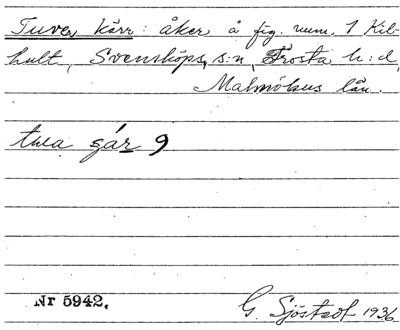 Tuve kärr: åker å fig. num. 1 Kil-
hult, Svensköps s:n, Frosta h:d,
Malmöhus län.
tua 9
Nr 5942.
G. Sjöstedt 1936